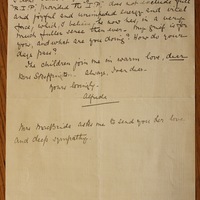 "R.I.P." provided the "I.P." does not exclude full
and joyful and unimpeded energy and vital
force, which is in how her, in a very
much fuller sense than ever. My grief is for
you, and what are you doing? How do your
days pass?
The children join me in warm love, dear
Mrs. Always, dear
Yours lovingly,
Mrs. McBride asks me to send you her love
and deep sympathy.